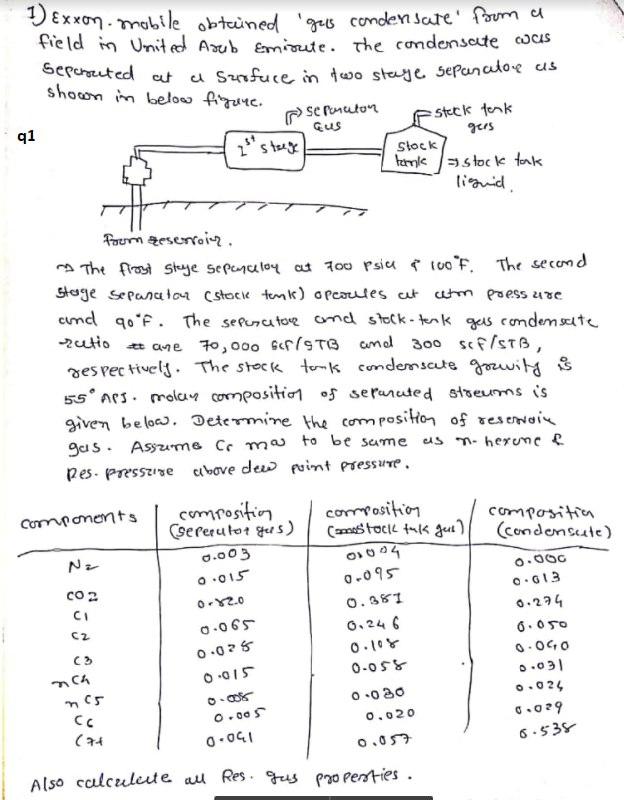 1) Exxon-mobile obtained 'gus condensate' from a
field in United Arub Emiraute. The condensate was
Separated at a Surfuce in two stage separator as
shown in below figure.
q1
separator
Gus
stock tank
ges
1st stage
Stock
tank
⇒ stock tank
liquid.
from reservoir.
→ The first stge separator at 700 Psia & 100°F. The second
stage separator (stock tank) operates at atm pressure
and 90°F. The separator and stock-tank gas condensate
ratio are 70,000 scf/STB and 300 scf/STB,
respectively. The stock tank condensate gravity is
55° API. molar composition of separated streams is
given below. Determine the composition of reservoir
gas. Assume C6 mw to be same as n-hexane &
Res. pressure above dew point pressure.
components composition composition composition
(seperator gas) (Stock tnk gas) (condensate)
N2 0.003 0.004 0.000
CO2 0.015 0.095 0.013
C1 0.820 0.381 0.274
C2 0.065 0.246 0.050
C3 0.028 0.108 0.040
nC4 0.015 0.058 0.031
nC5 0.008 0.030 0.024
C6 0.005 0.020 0.029
C7+ 0.041 0.057 0.538
Also calculate all Res. gas properties.